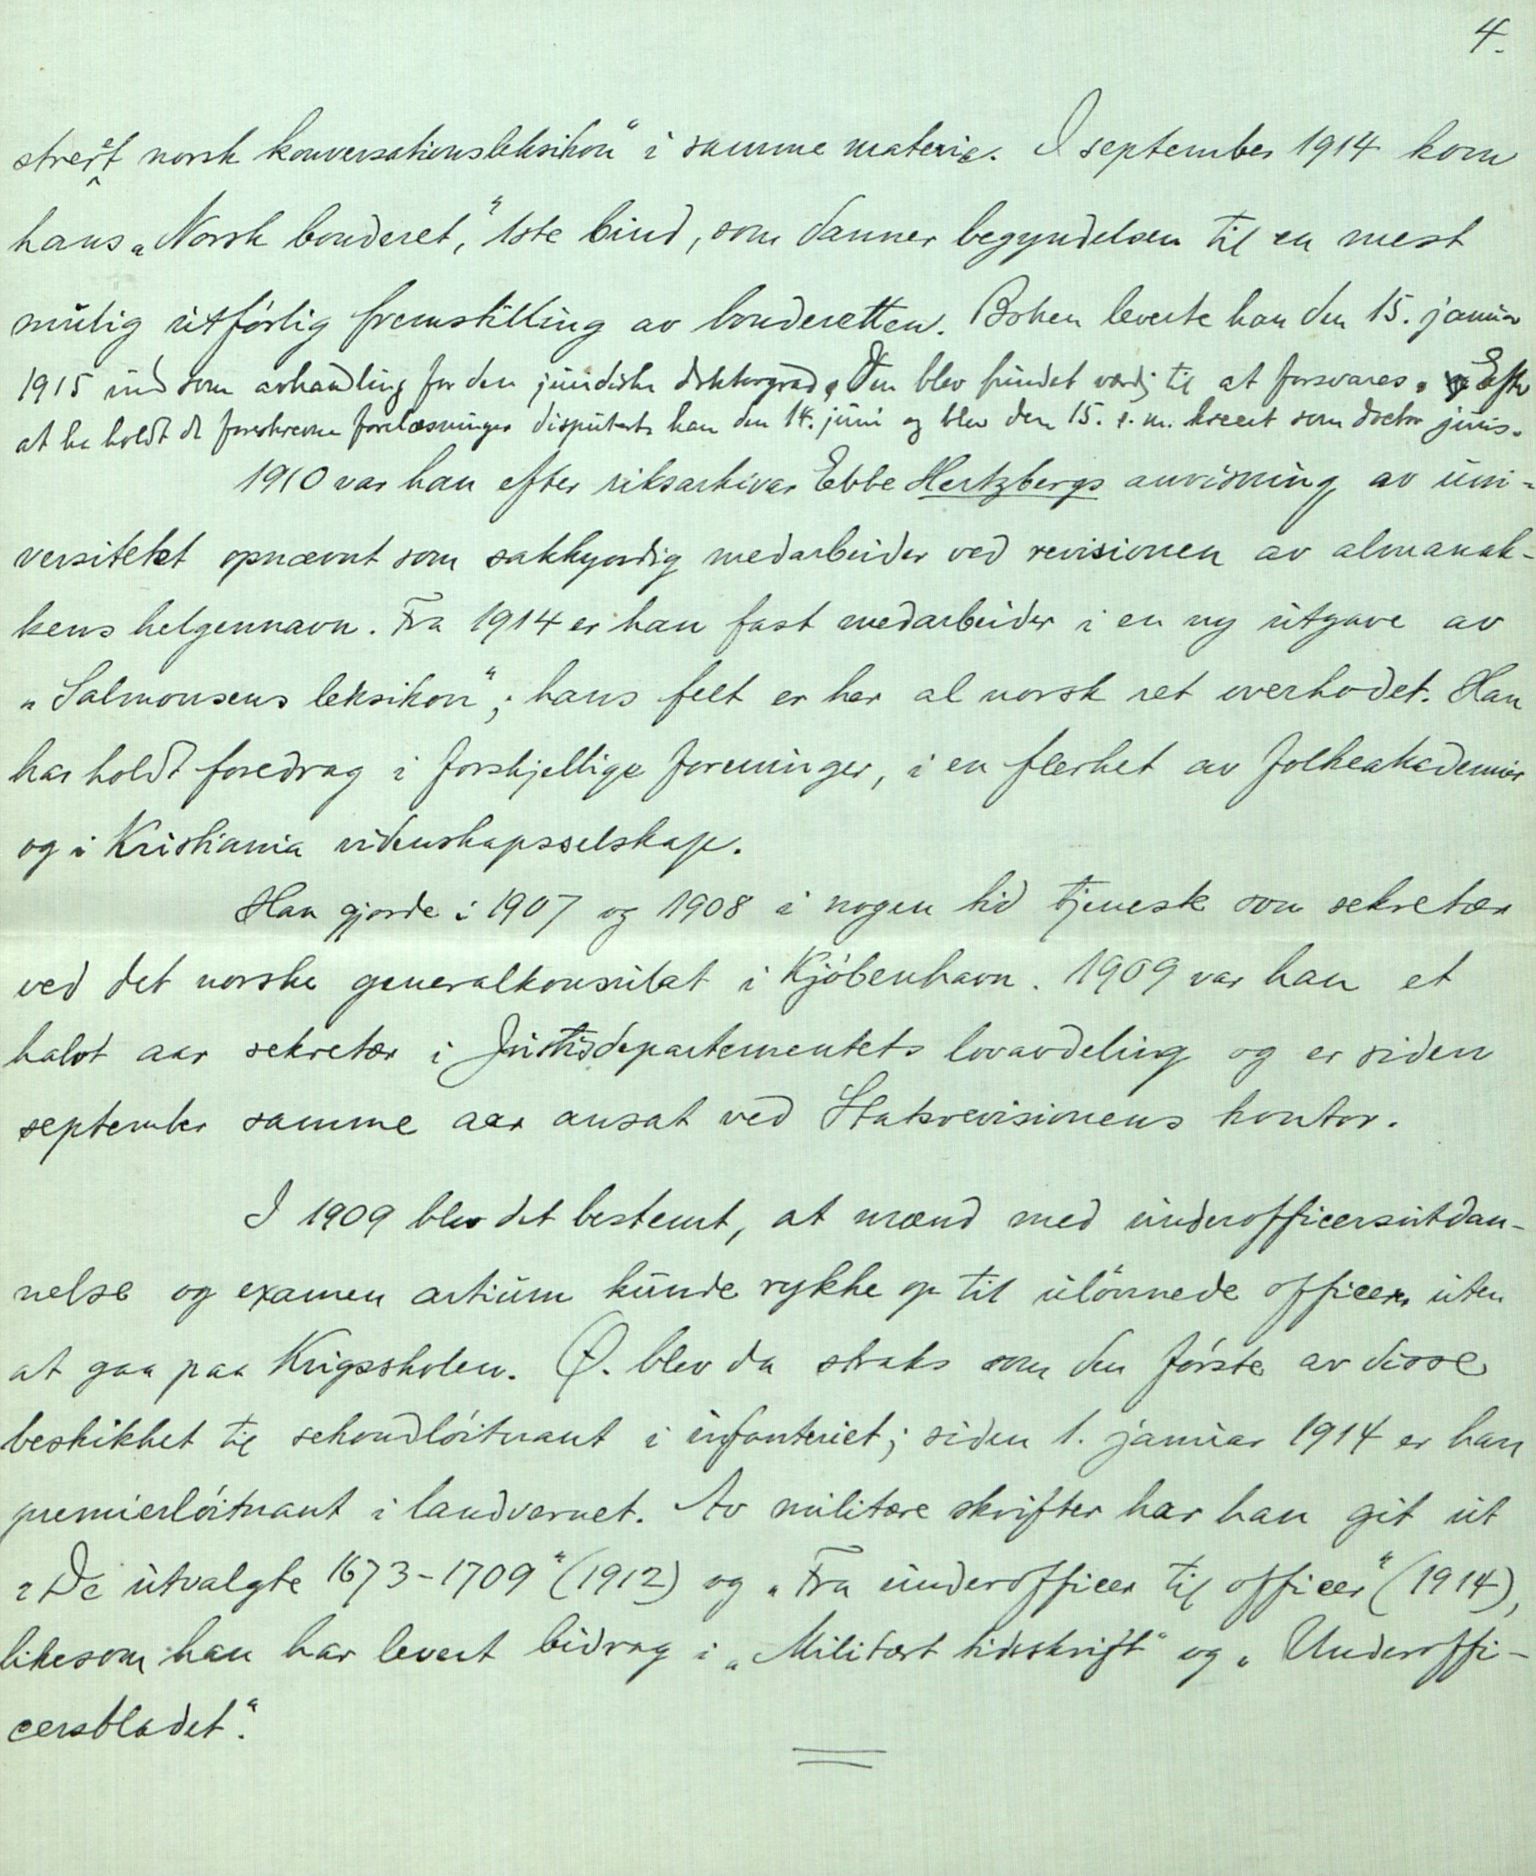 4.
strert norsk konversationsleksikon" i samme materie. I september 1914 kom
hans „Norsk bonderet," 1ste bind, som danner begyndelsen til en mest
mulig utførlig fremstilling av bonderetten. Boken leverte han den 15. januar
1915 ind som avhandling for den juridiske doktorgrad. Den blev fundet værdig til at forsvares. Efter
at ha holdt de foreskrevne forelæsninger disputerte han den 14. juni og blev den 15. s. m. kreert som doctor juris.
1910 var han efter riksarkivar Ebbe Hertzbergs anvisning av uni-
versitetet opnævnt som sakkyndig medarbeider ved revisionen av almanak-
kens helgennavn. Fra 1914 er han fast medarbeider i en ny utgave av
„Salmonsens leksikon"; hans felt er her al norsk ret overhodet. Han
har holdt foredrag i forskjellige foreninger, i en flerhet av folkeakademier
og i Kristiania videnskapsselskap.
Han gjorde i 1907 og 1908 i nogen tid tjeneste som sekretær
ved det norske generalkonsulat i Kjøbenhavn. 1909 var han et
halvt aar sekretær i Justisdepartementets lovavdeling og er siden
september samme aar ansat ved Statsrevisionens kontor.
I 1909 blev det bestemt, at mænd med underofficersutdan-
nelse og examen artium kunde rykke op til ulønnede officerer uten
at gaa paa Krigsskolen. Ø. blev da straks som den første av disse
beskikket til sekondløitnant i infanteriet; siden 1. januar 1914 er han
premierløitnant i landvernet. Av militære skrifter har han git ut
„De utvalgte 1673-1709" (1912) og „Fra underofficer til officer" (1914),
likesom han har levert bidrag i „Militært tidsskrift" og „Underoffi-
cersbladet".